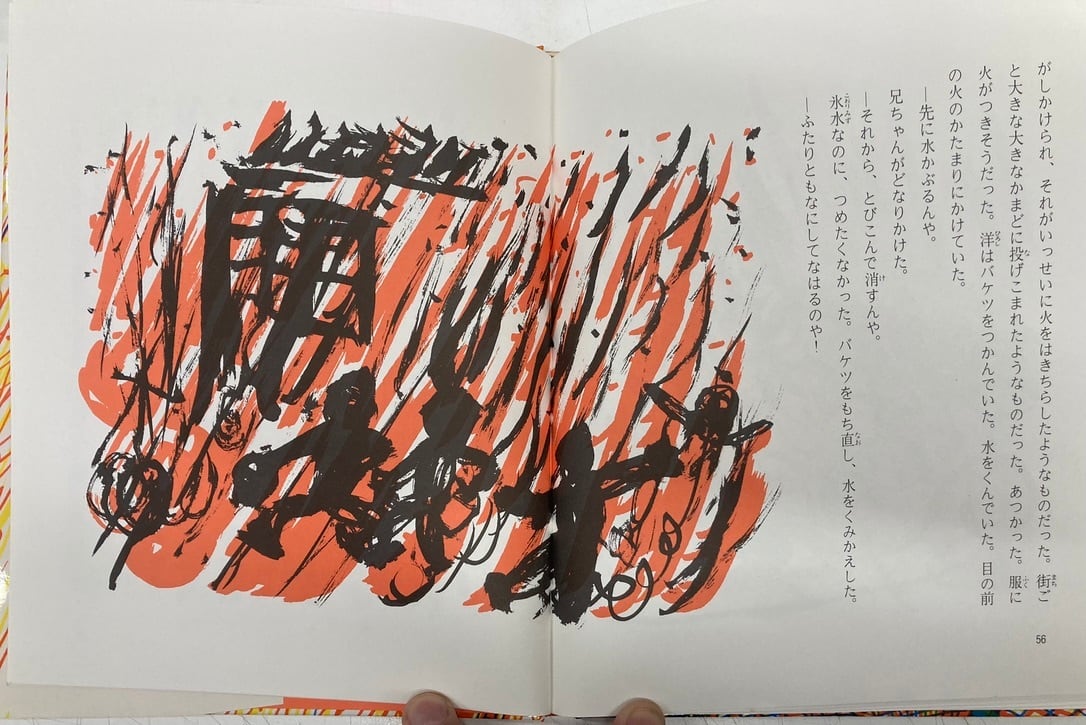 がしかけられ、それがいっせいに火をはきちらしたようなものだった。街ご
と大きな大きなかまどに投げこまれたようなものだった。あつかった。服に
火がつきそうだった。洋はバケツをつかんでいた。水をくんでいた。目の前
の火のかたまりにかけていた。
―先に水かぶるんや。
兄ちゃんがどなりかけた。
―それから、とびこんで消すんや。
氷水なのに、つめたくなかった。バケツをもち直し、水をくみかえした。
―ふたりともなにしてなはるのや！
56